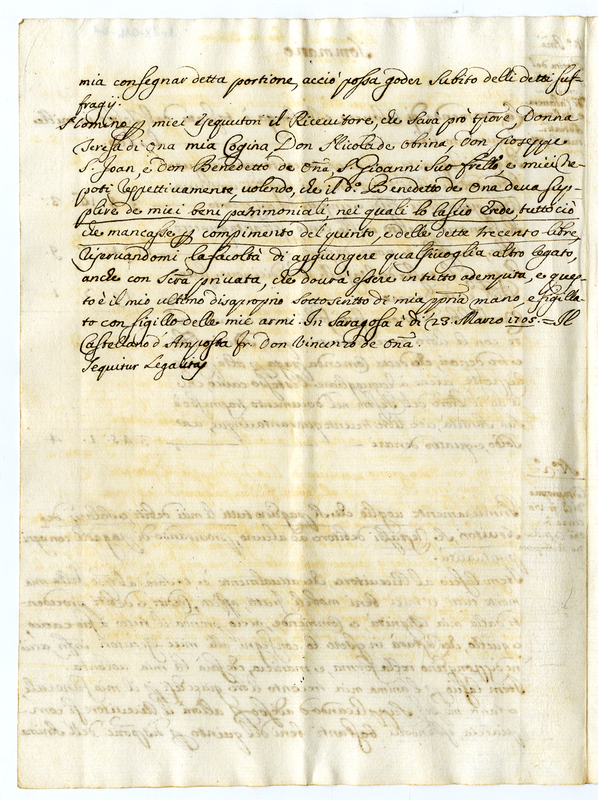 mia consegnar detta portione, acciò possa goder subito delli detti suf-
fragij.
Nomino p miei Esequutori il Ricevitore, che sarà prò tpore, Donna
Teresa di Oña mia Cogina, Don Nicola de Obrina, Don Gioseppe
S. Joan, e Don Benedetto de Oña, S. Gioanni suo frello, e miei Ne-
poti respettivamente, volendo, che il d.º Benedetto de Oña deva sup-
plire de miei beni patrimoniali, nei quali lo lascio Erede, tutto ciò
che mancasse p compimento del quinto, e delle dette trecento libre,
riservandomi la facoltà di aggiungere qualsivoglia altro legato,
anche con Scra privata, che dovrà essere in tutto adempita, e ques-
to è il mio ultimo disaproprio sottoscritto di mia ppria mano, e sigilla-
to con sigillo delle mie armi. In Saragosa à di 23. Marzo 1705. = Il
Castellano d'Amposta fr. Don Vincenzo de Oña.
Sequitur Legalitas